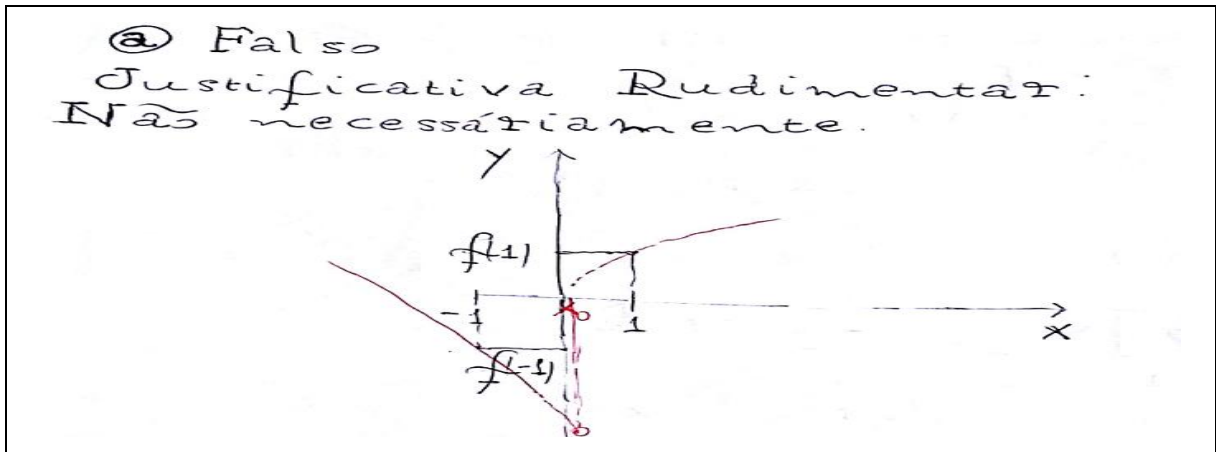 ⓐ Falso
Justificativa Rudimentar:
Não necessáriamente.
Y
f(1)
-1
x₀
1
X
f(-1)